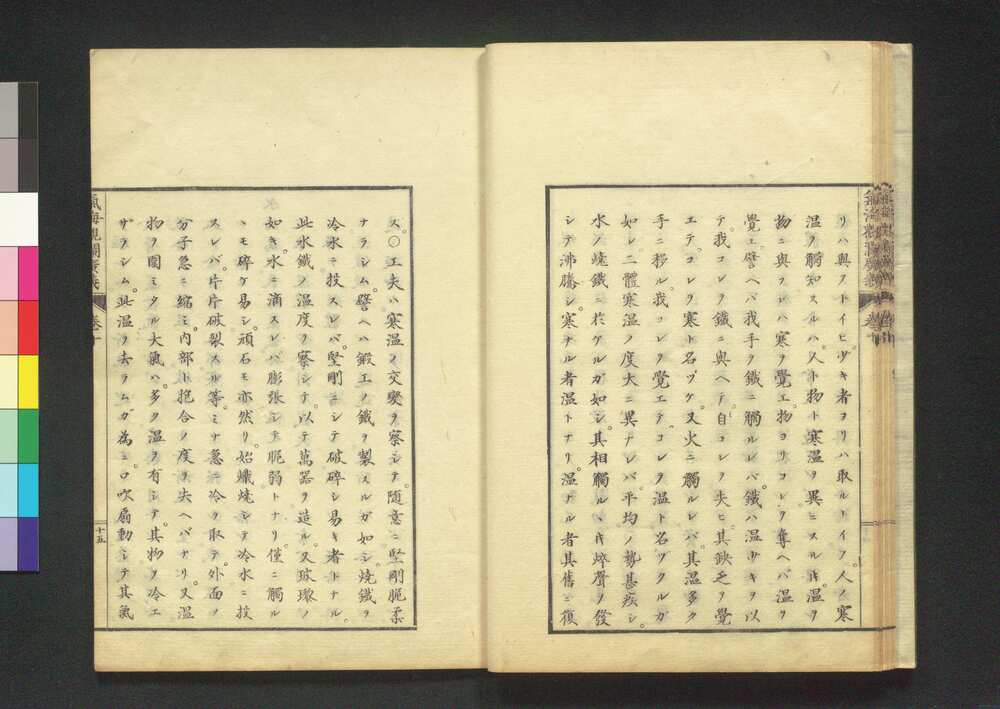 リハ與フトイヒ少キ者ヨリハ取ルトイフ人ノ寒
温ヲ觸知スルハ人ト物ト寒温ヲ異ニスル𪜈温ヲ
物ニ與フレハ寒ヲ覺エ物ヨリコレヲ奪ヘハ温ヲ
覺エ譬ヘバ我手ヲ鐵ニ觸ルレバ鐵ハ温少キヲ以
テ我コレヲ鐵ニ與ヘテ自コレヲ失ヒ其缺乏ヲ覺
エテコレヲ寒ト名ヅケ又火ニ觸ルレバ其温多ク
手ニ移ル我コレヲ覺エテコレヲ温ト名ヅクルガ
如シ二體寒温ノ度大ニ異ナレバ平均ノ勢甚疾シ
水ノ燒鐵ニ於ケルガ如シ其相觸ルヽ𪜈焠聲ヲ發
シテ沸騰シ寒ナル者温トナリ温ナル者其舊ニ復
ス○工夫ハ寒温ノ交變ヲ察シテ隨意ニ堅剛脆柔
ナラシム譬ヘハ鍛工ノ鐵ヲ製スルガ如シ燒鐵ヲ
冷水ニ投スレバ堅剛ニシテ破碎シ易キ者トナル
此水鐵ノ温度ヲ察シテ以テ萬器ヲ造ル又玻瓈ノ
如キ水ニ滴スレハ膨張シテ脆弱トナリ僅ニ觸ル
ヽモ碎ケ易シ頑石モ亦然リ始熾燒シテ冷水ニ投
スレバ片片破裂スル等ミナ急ニ冷ヲ取テ外面ノ
分子急ニ縮ミ内部ト抱合ノ度ヲ失ヘバナリ又温
物ヲ圍ミタル大氣ハ多ク温ヲ有シテ其物ヲ冷エ
ザラシム此温ヲ去ラムガ為ニ口吹扇動シテ其氣
氣海觀瀾廣義
卷十
十五